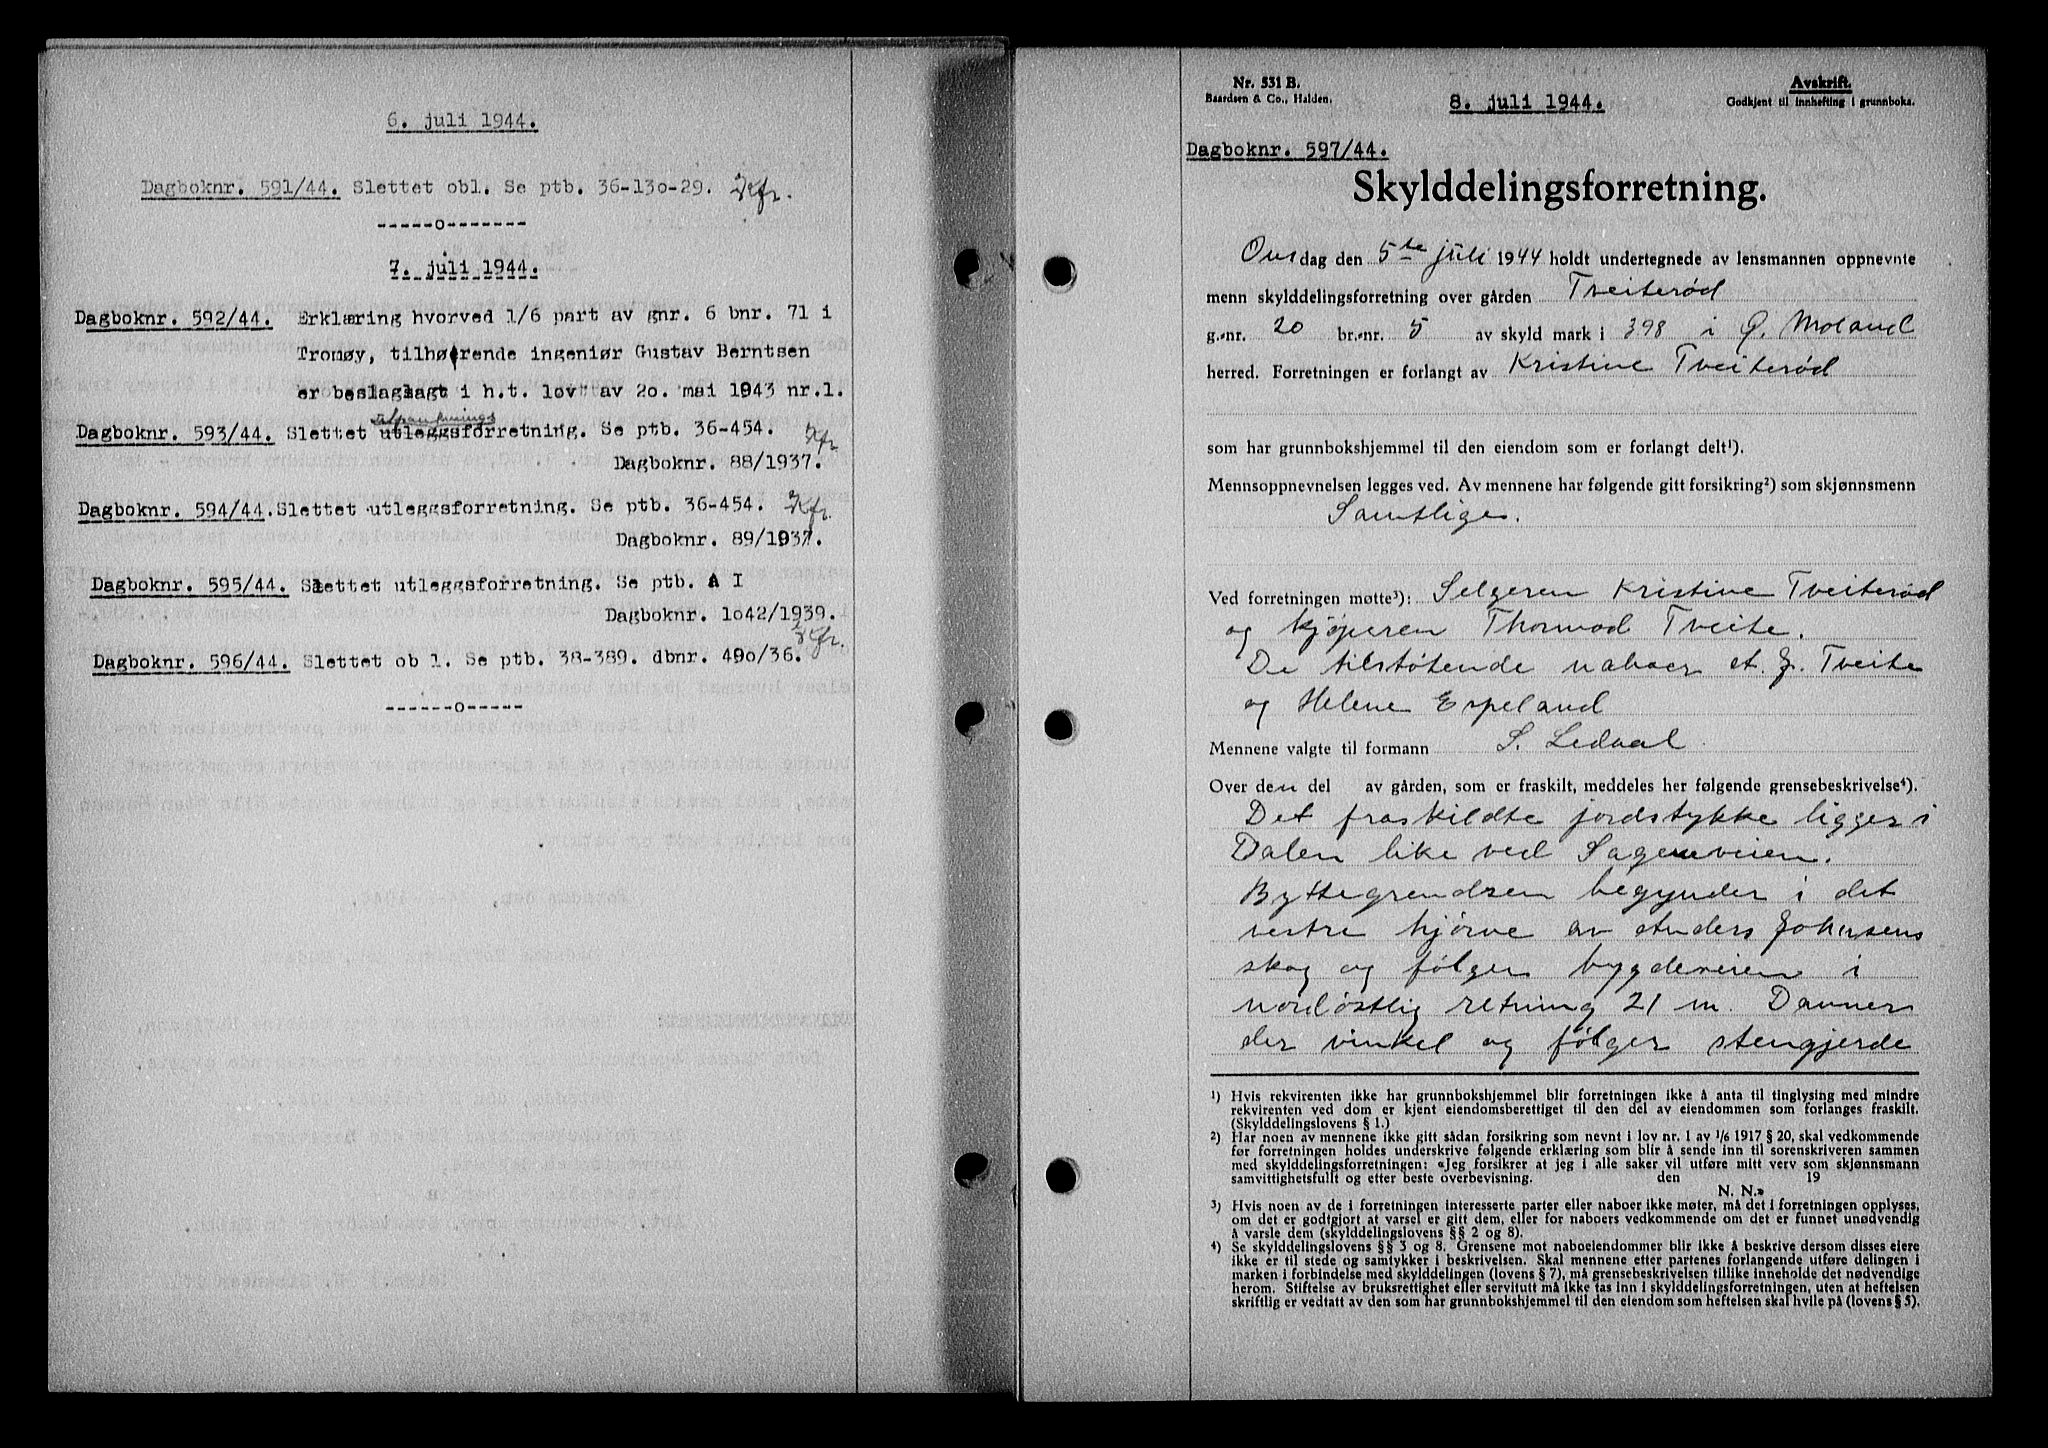 6. juli 1944.
Dagboknr. 591/44. Slettet obl. Se ptb. 36-130-29.
-----o-------
7. juli 1944.
Dagboknr. 592/44. Erklæring hvorved 1/6 part av gnr. 6 bnr. 71 i
Tromøy, tilhørende ingeniør Gustav Berntsen
er beslaglagt i h.t. lov av 20. mai 1943 nr.1.
Dagboknr. 593/44. Slettet utleggsforretning. Se ptb. 36-454.
Dagboknr. 88/1937.
Dagboknr. 594/44. Slettet utleggsforretning. Se ptb. 36-454.
Dagboknr. 89/1937.
Dagboknr. 595/44. Slettet utleggsforretning. Se ptb. A I
Dagboknr. 1042/1939.
Dagboknr. 596/44. Slettet ob l. Se ptb. 38-389. dbnr. 490/36.
------o------
Nr. 531 B.
Baardsen & Co., Halden.
8. juli 1944.
Avskrift.
Godkjent til innhefting i grunnboka.
Dagboknr. 597/44.
Skylddelingsforretning.
Onsdag den 5te juli 1944 holdt undertegnede av lensmannen oppnevnte
menn skylddelingsforretning over gården Tveiterød
g.-nr. 20 br.-nr. 5 av skyld mark i 398 i Ø. Moland
herred. Forretningen er forlangt av Kristine Tveiterød
som har grunnbokshjemmel til den eiendom som er forlangt delt¹).
Mennsoppnevnelsen legges ved. Av mennene har følgende gitt forsikring²) som skjønnsmenn
Samtlige.
Ved forretningen møtte³): Selgeren Kristine Tveiterød
og kjøperen Thormod Tveite.
De tilstøtende naboer A. J. Tveite
og Helene Espeland
Mennene valgte til formann S. Ledaal
Over den del av gården, som er fraskilt, meddeles her følgende grensebeskrivelse⁴).
Det fraskildte jordstykke ligger i
Dalen like ved Sageneveien.
Byttegrendsen begynder i det
vestre hjørne av Anders Johnsens
skog og følger bygdeveien i
nordøstlig retning 21 m. Danner
der vinkel og følger stengjerde
¹) Hvis rekvirenten ikke har grunnbokshjemmel blir forretningen ikke å anta til tinglysing med mindre
rekvirenten ved dom er kjent eiendomsberettiget til den del av eiendommen som forlanges fraskilt.
(Skylddelingslovens § 1.)
²) Har noen av mennene ikke gitt sådan forsikring som nevnt i lov nr. 1 av 1/6 1917 § 20, skal vedkommende
før forretningen holdes underskrive følgende erklæring som blir å sende inn til sorenskriveren sammen
med skylddelingsforretningen: «Jeg forsikrer at jeg i alle saker vil utføre mitt verv som skjønnsmann
samvittighetsfullt og etter beste overbevisning. den 19
N. N.»
³) Hvis noen av de i forretningen interesserte parter eller naboer ikke møter, må det i forretningen opplyses,
om det er godtgjort at varsel er gitt dem, eller for naboers vedkommende om det er funnet unødvendig
å varsle dem (skylddelingslovens §§ 2 og 8).
⁴) Se skylddelingslovens §§ 3 og 8. Grensene mot naboeiendommer blir ikke å beskrive dersom disses eiere
ikke er til stede og samtykker i beskrivelsen. Skal mennene etter partenes forlangende utføre delingen i
marken i forbindelse med skylddelingen (lovens § 7), må grensebeskrivelsen tillike inneholde det nødvendige
herom. Stiftelse av bruksrettighet eller servitutt må ikke tas inn i skylddelingsforretningen, uten at heftelsen
skriftlig er vedtatt av den som har grunnbokshjemmel til den eiendom som heftelsen skal hvile på (lovens § 5).